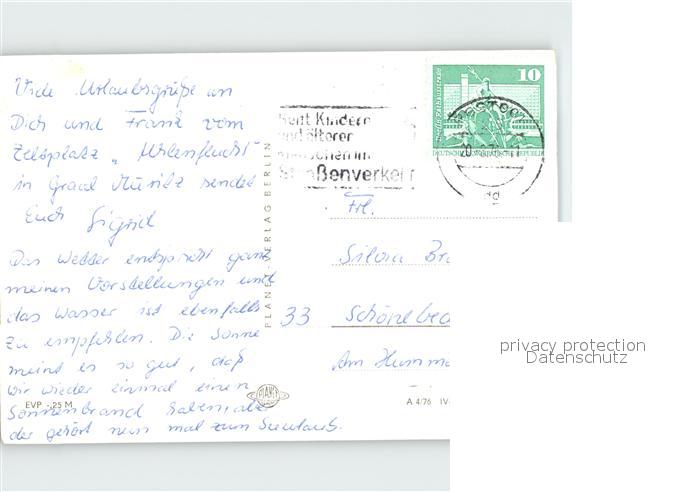 Viele Urlaubsgrüße an
Dich und Frank vom
Zeltplatz „Uhlenflucht"
in Graal Müritz sendet
Euch Sigrid
Das Wetter entspricht ganz
meinen Vorstellungen und
das Wasser ist ebenfalls
zu empfehlen. Die Sonne
meint es so gut, daß
wir wieder einmal einen
Sonnenbrand haben, aber
der gehört nun mal zum Seeurlaub.
EVP -,25 M
PLANET-VERLAG BERLIN
PLANET
Kindern
und älterer
Menschen im
Straßenverkehr
10
DEUTSCHE DEMOKRATISCHE REPUBLIK
Frl.
Silvia
33
Am
A 4/76 IV
privacy protection
Datenschutz